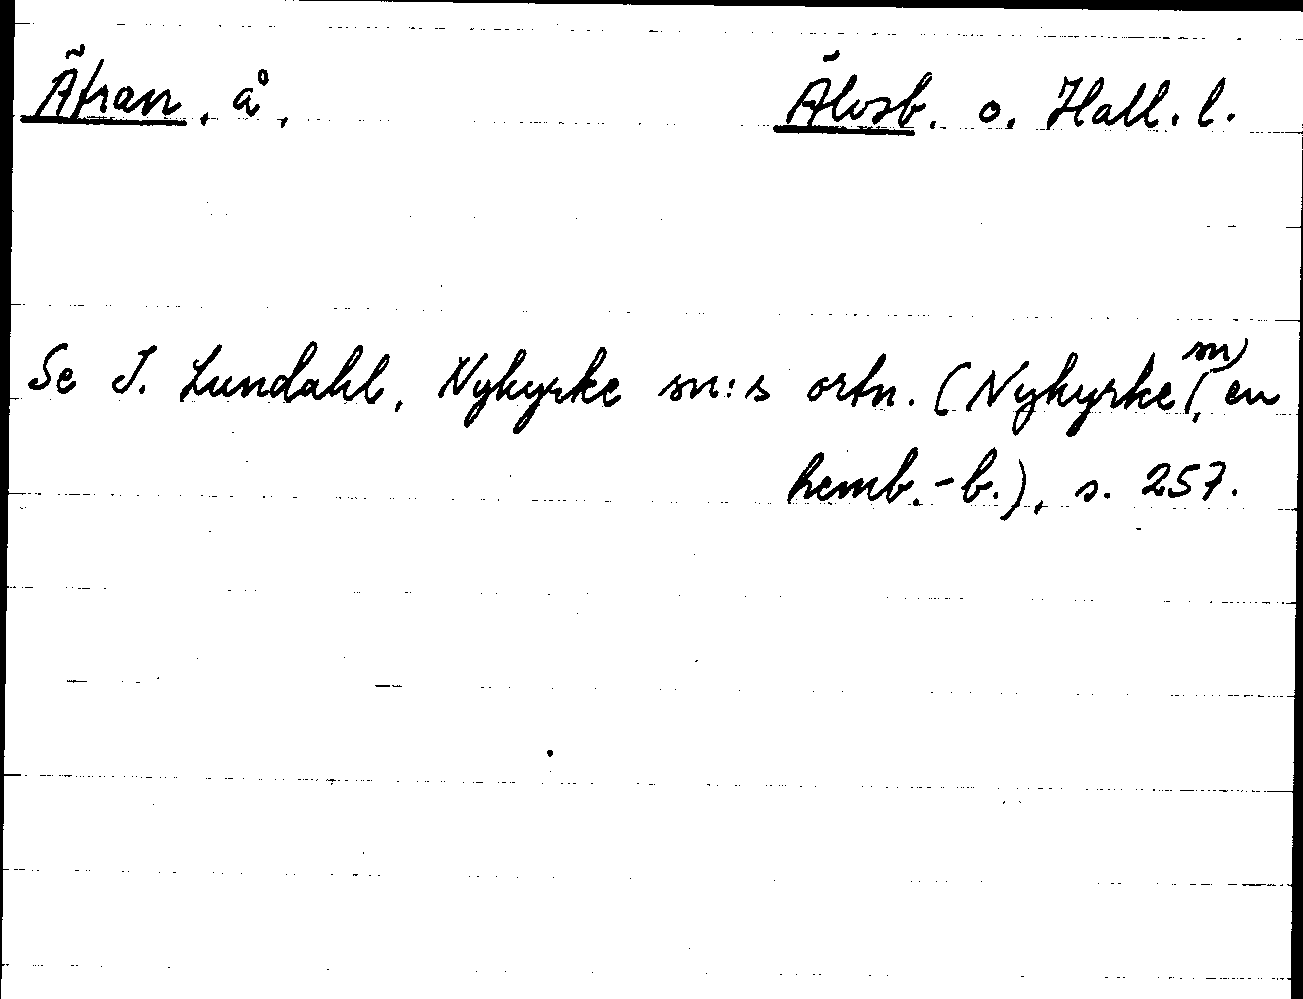 Ätran, å, Älvsb. o. Hall. l.
Se I. Lundahl, Nykyrke sn:s ortn. (Nykyrke sn, en
hemb.-b.), s. 257.